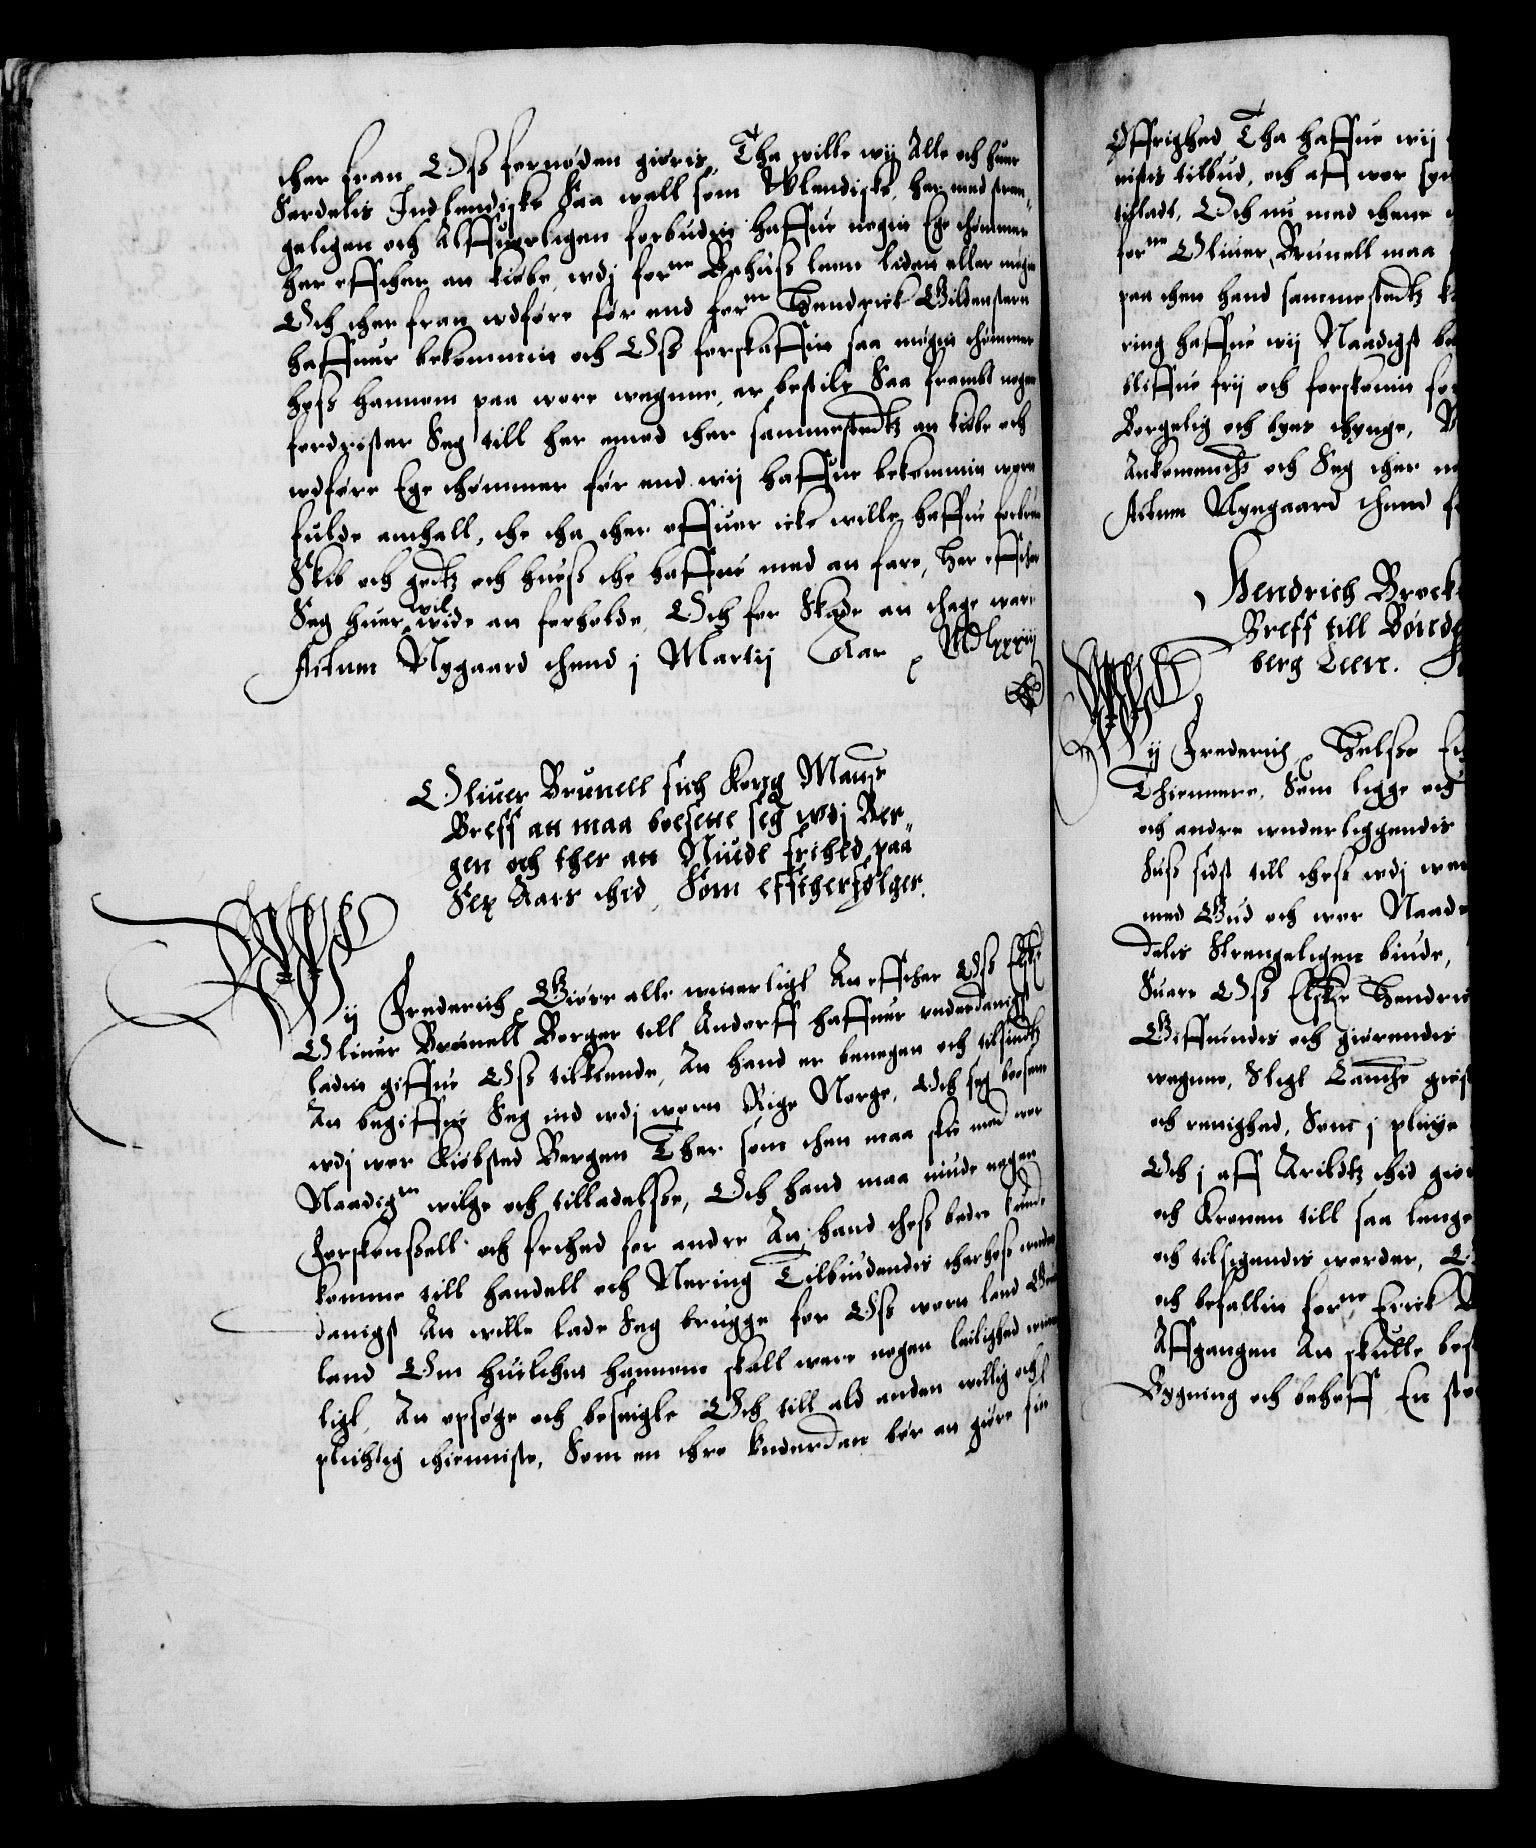 ther fran Oss fornøden giøris, Tha wille wij Alle och huer
Serdelis Indlendiske Saa well som Vdlendiske, her med stren¬
geligen och Alffuorligen forbudin haffue nogin Ege thømmer
her effther an kiøbe, wdj forne Bahuss leen liden eller megit
Och ther fran wdføre før end forne Hendrick Gildenstern
haffuer bekommin och Oss forskaffin saa mogin thømmer
hoss hannom paa wore wegnne er bestilt Saa frambt nogen
fordrister Seg till her emod ther sammestedtz an kiøbe och
wdføre Ege thømmer før end wij haffue bekommin worn
fulde anthall, the tha ther offuer icke wille haffue forbrut
Skib och godtz och huess the haffue med an fare, Her effther
Seg huer wil wide an forholde, Och for Skade an thage ware
Actum Nygaard thend j Martij Aar MDlxxxiij
Oliuer Brunell fich Kong Matts
Breff att maa boesette seg wdj Ber¬
gen och ther att Niude frihed paa
Sex Aars thid, Som efftherfølger.
Wij Frederich Giøre alle witterligt An effther Oss Elske
Oliuer Brunell Borger till Andorff haffuer vnderdanigst
ladin giffue Oss tilkiende, An hand er benegen och tilsindtz
An begiffue Seg ind wdj wortt Rige Norge, Och seg boesette
wdj wor Kiøbsted Bergen Ther som then maa skie med wor
Naadigste wilge och tilladelsse, Och hand maa niude nogen
Forskonsell och frihed for andre An hand thess bedre kunde
komme till handell och Nering Tilbiudendis therhoss vnder
danigst An wille lade Seg brugge for Oss wortt land Grøn
land Om huilchen hannom skall were nogen leilighed witter
ligt, An opsøge och beseigle Och till ald anden willig och
plichtig thienniste, Som en thro Vnderdan bør an giøre sin
Øffrighed, Tha haffue wij
nistis tilbud, och aff wor syn
tilladt, Och nu med thene
forne Oliuer Brunell maa
paa then hand sammestedtz
ring haffue wij Naadigst be
bliffue frij och forskonin for
Borgelig och byes thynge,
Ankomendis och Seg ther ne
Actum Nygaard thend
Hendrich Brock
Breff till Bønde
berg Leen.
Wij Frederich Helsse
Thiennere, Som ligge och
och andre vnderliggendis
huss sidst till thess wdj wer
med Gud och wor Naade
delis Strengeligen biude,
Suare Oss Elske Hendric
Giffuendis och giørendis
wegnne, Sligt Landtz
och renighed, Som j pleiye
Och j aff Arildtz thid gior
och Kronen till saa lenge
och tilsigendis worder,
och befallin forne Erick
Affgangen An skulle best
Bygning och behoff En sto